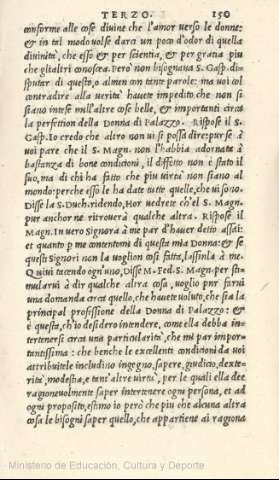 TERZO. 150
conforme alle cose divine che l'amor verso le donne:
& in tal modo volse dara un poco d'odor di quella
divinità, che esso & per scientia, & per gratia piu
che gli altri conoscea. Però non bisognava S. Gasp. di-
sputer di questo, o almen con tante parole: ma voi col
contradire alla verità havete impedito, che non si
siano intese mill'altre cose belle, & importanti circa
la perfettion della Donna di Palazzo. Rispose il S.
Gasp. Io credo che altro non vi si possa dire: pur se à
voi pare che il S. Magn. non l'habbia adornata à
bastanza di bone condicioni, il diffetto non è stato il
suo, ma di chi ha fatto che piu virtù non siano al
mondo: perche esso le ha date tutte quelle, che vi sono.
Disse la S. Duch. ridendo, Hor vedrete ch'el S. Magn.
pur anchor ne ritrouerà qualche altra. Rispose il
Magn. In vero Signora à me par d'hauer detto assai:
et quanto p me contentomi di questa mia Donna: & se
questi Signori non la voglion cosi fatta, lassinla à me.
Quivi tacendo ogni uno, Disse M. Fed. S. Magn. per sti-
mularvi à dir qualche altra cosa, voglio pur farvi
una domanda circa quello, che havete voluto, che sia la
principal professione della Donna di Palazzo: &
è questa, ch'io desidero intendere, come ella debba in-
tertenersi circa una particularità, che mi par impor-
tantissima: che benche le excellenti condicioni da voi
attribuitele includino ingegno, sapere, giudicio, dexte-
rità, modestia, e tant'altre virtù, per le quali ella dee
ragionevolmente saper intertenere ogni persona, et ad
ogni proposito, estimo io però che piu che alcuna altra
cosa le bisogni saper quello, che appartiene ai ragiona
Ministerio de Educación, Cultura y Deporte